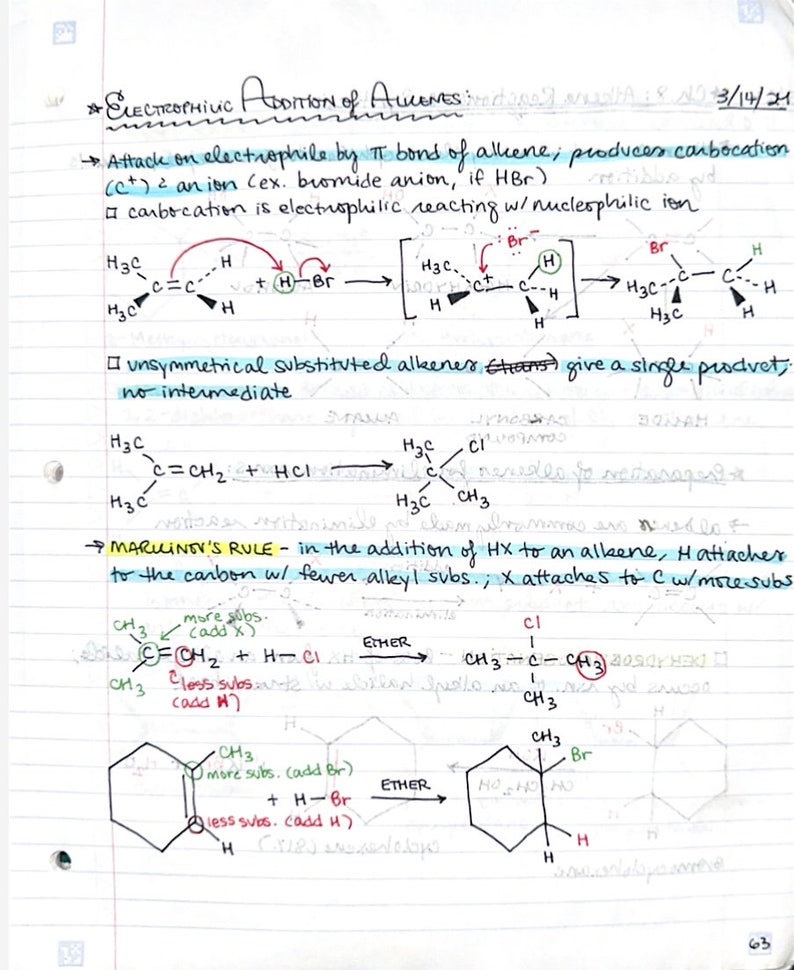 * ELECTROPHILIC ADDITION OF ALKENES: 3/14/24
→ Attack on electrophile by π bond of alkene; produces carbocation
(C⁺) & an ion (ex. bromide anion, if HBr)
□ carbocation is electrophilic reacting w/ nucleophilic ion
:Br⁻
H₃C H₃C C=C H H + H Br → [ H₃C H C⁺ — C H H H ] → Br H₃C H₃C C — C H H H
□ unsymmetrical substituted alkenes (trans) give a single product;
no intermediate
H₃C H₃C C=CH₂ + HCl → H₃C H₃C C Cl CH₃
→ MARKINOV'S RULE - in the addition of HX to an alkene, H attaches
to the carbon w/ fewer alkyl subs.; X attaches to C w/ more subs
more subs.
(add X)
CH₃ CH₃ C=CH₂ + H—Cl ETHER → CH₃—C—CH₃ Cl CH₃
less subs.
(add H)
CH₃
more subs. (add Br)
+ H—Br ETHER →
less subs. (add H)
H
CH₃
Br
H
H
63